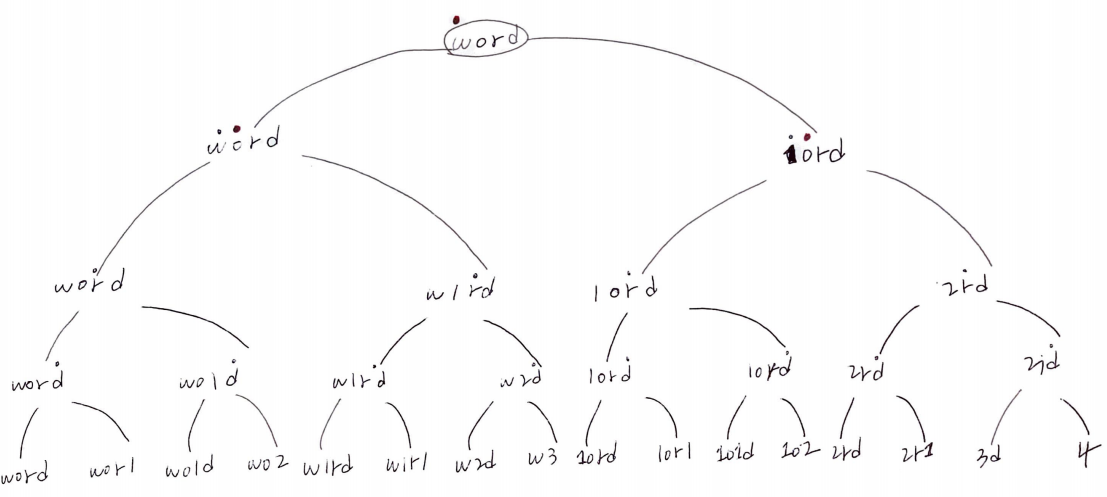 word
word 1ord
word w1rd 1ord 2rd
word wo1d w1rd w2d 1ord 1ord 2rd
word wor1 wo1d wo2 w1rd w1r1 w2d w3 1ord 1or1 1o1d 1o2 2rd 2r1 3d 4